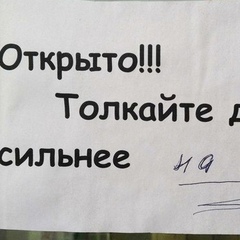 Открыто!!!
Толкайте д
сильнее на